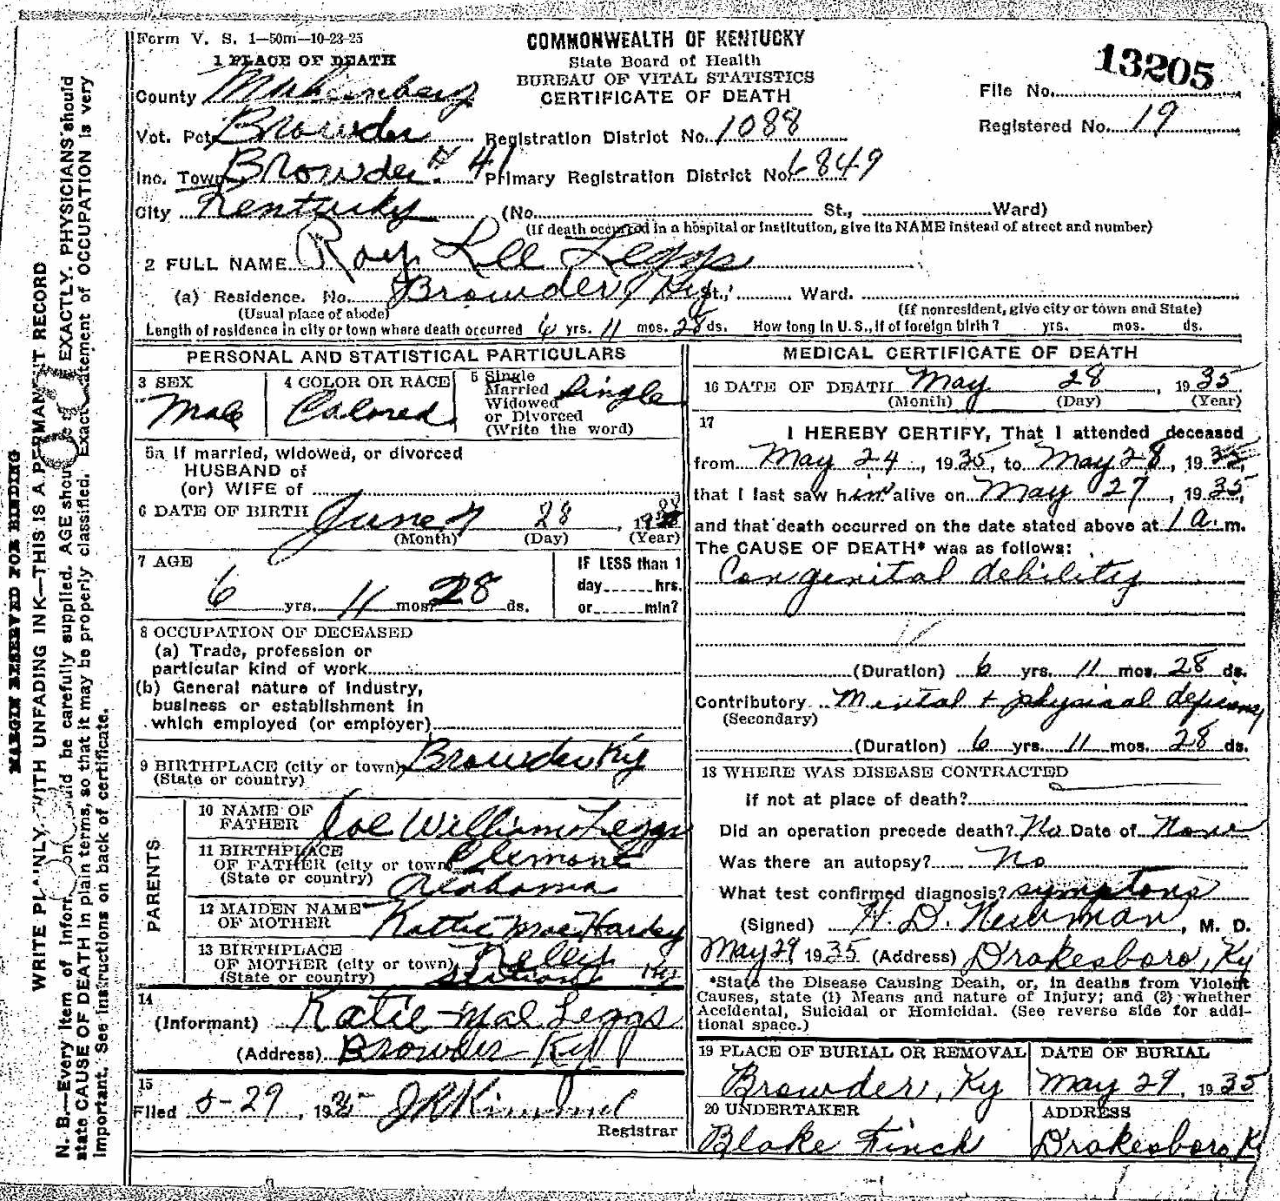 Form V. S. 1—50m—10-23-25
COMMONWEALTH OF KENTUCKY
State Board of Health
BUREAU OF VITAL STATISTICS
CERTIFICATE OF DEATH
13205
File No.
Registered No. 19
1 PLACE OF DEATH
County Muhlenberg
Vot. Pct Browder Registration District No. 1088
Inc. Town Browder # 41 Primary Registration District No. 6849
City Kentucky (No. St., Ward)
(If death occurred in a hospital or institution, give its NAME instead of street and number)
2 FULL NAME Roy Lee Leggs
(a) Residence. No. Browder, Ky St., Ward.
(Usual place of abode) (If nonresident, give city or town and State)
Length of residence in city or town where death occurred 6 yrs. 11 mos. 28 ds. How long in U. S., if of foreign birth? yrs. mos. ds.
PERSONAL AND STATISTICAL PARTICULARS
3 SEX
Male
4 COLOR OR RACE
Colored
5 Single
Married
Widowed
or Divorced
(Write the word)
Single
5a If married, widowed, or divorced
HUSBAND of
(or) WIFE of
6 DATE OF BIRTH June 28, 19
(Month) (Day) (Year)
7 AGE
6 yrs. 11 mos. 28 ds.
IF LESS than 1
day hrs.
or min?
8 OCCUPATION OF DECEASED
(a) Trade, profession or
particular kind of work
(b) General nature of industry,
business or establishment in
which employed (or employer)
9 BIRTHPLACE (city or town) Browder, Ky
(State or country)
PARENTS
10 NAME OF
FATHER William Leggs
11 BIRTHPLACE
OF FATHER (city or town)
(State or country) Alabama
12 MAIDEN NAME
OF MOTHER Kattie Mae Hardy
13 BIRTHPLACE
OF MOTHER (city or town)
(State or country) Station Ky
14
(Informant) Katie Mae Leggs
(Address) Browder Ky
15
Filed 5-29, 1935 J R Kimmel
Registrar
MEDICAL CERTIFICATE OF DEATH
16 DATE OF DEATH May 28, 1935
(Month) (Day) (Year)
17
I HEREBY CERTIFY, That I attended deceased
from May 24, 1935, to May 28, 1935,
that I last saw him alive on May 27, 1935,
and that death occurred on the date stated above at 1 a. m.
The CAUSE OF DEATH* was as follows:
Congenital debility
(Duration) 6 yrs. 11 mos. 28 ds.
Contributory Mental + physical deficiency
(Secondary)
(Duration) 6 yrs. 11 mos. 28 ds.
18 WHERE WAS DISEASE CONTRACTED
if not at place of death?
Did an operation precede death? No Date of None
Was there an autopsy? No
What test confirmed diagnosis? symptons
(Signed) H. D. Newman, M. D.
May 29 1935 (Address) Drakesboro, Ky
*State the Disease Causing Death, or, in deaths from Violent
Causes, state (1) Means and nature of Injury; and (2) whether
Accidental, Suicidal or Homicidal. (See reverse side for addi-
tional space.)
19 PLACE OF BURIAL OR REMOVAL
Browder, Ky
DATE OF BURIAL
May 29, 1935
20 UNDERTAKER
Blake Finch
ADDRESS
Drakesboro, K
MARGIN RESERVED FOR BINDING
WRITE PLAINLY, WITH UNFADING INK—THIS IS A PERMANENT RECORD
N. B.—Every item of information should be carefully supplied. AGE should be EXACTLY. PHYSICIANS should
state CAUSE OF DEATH in plain terms, so that it may be properly classified. Exact statement of OCCUPATION is very
important. See instructions on back of certificate.